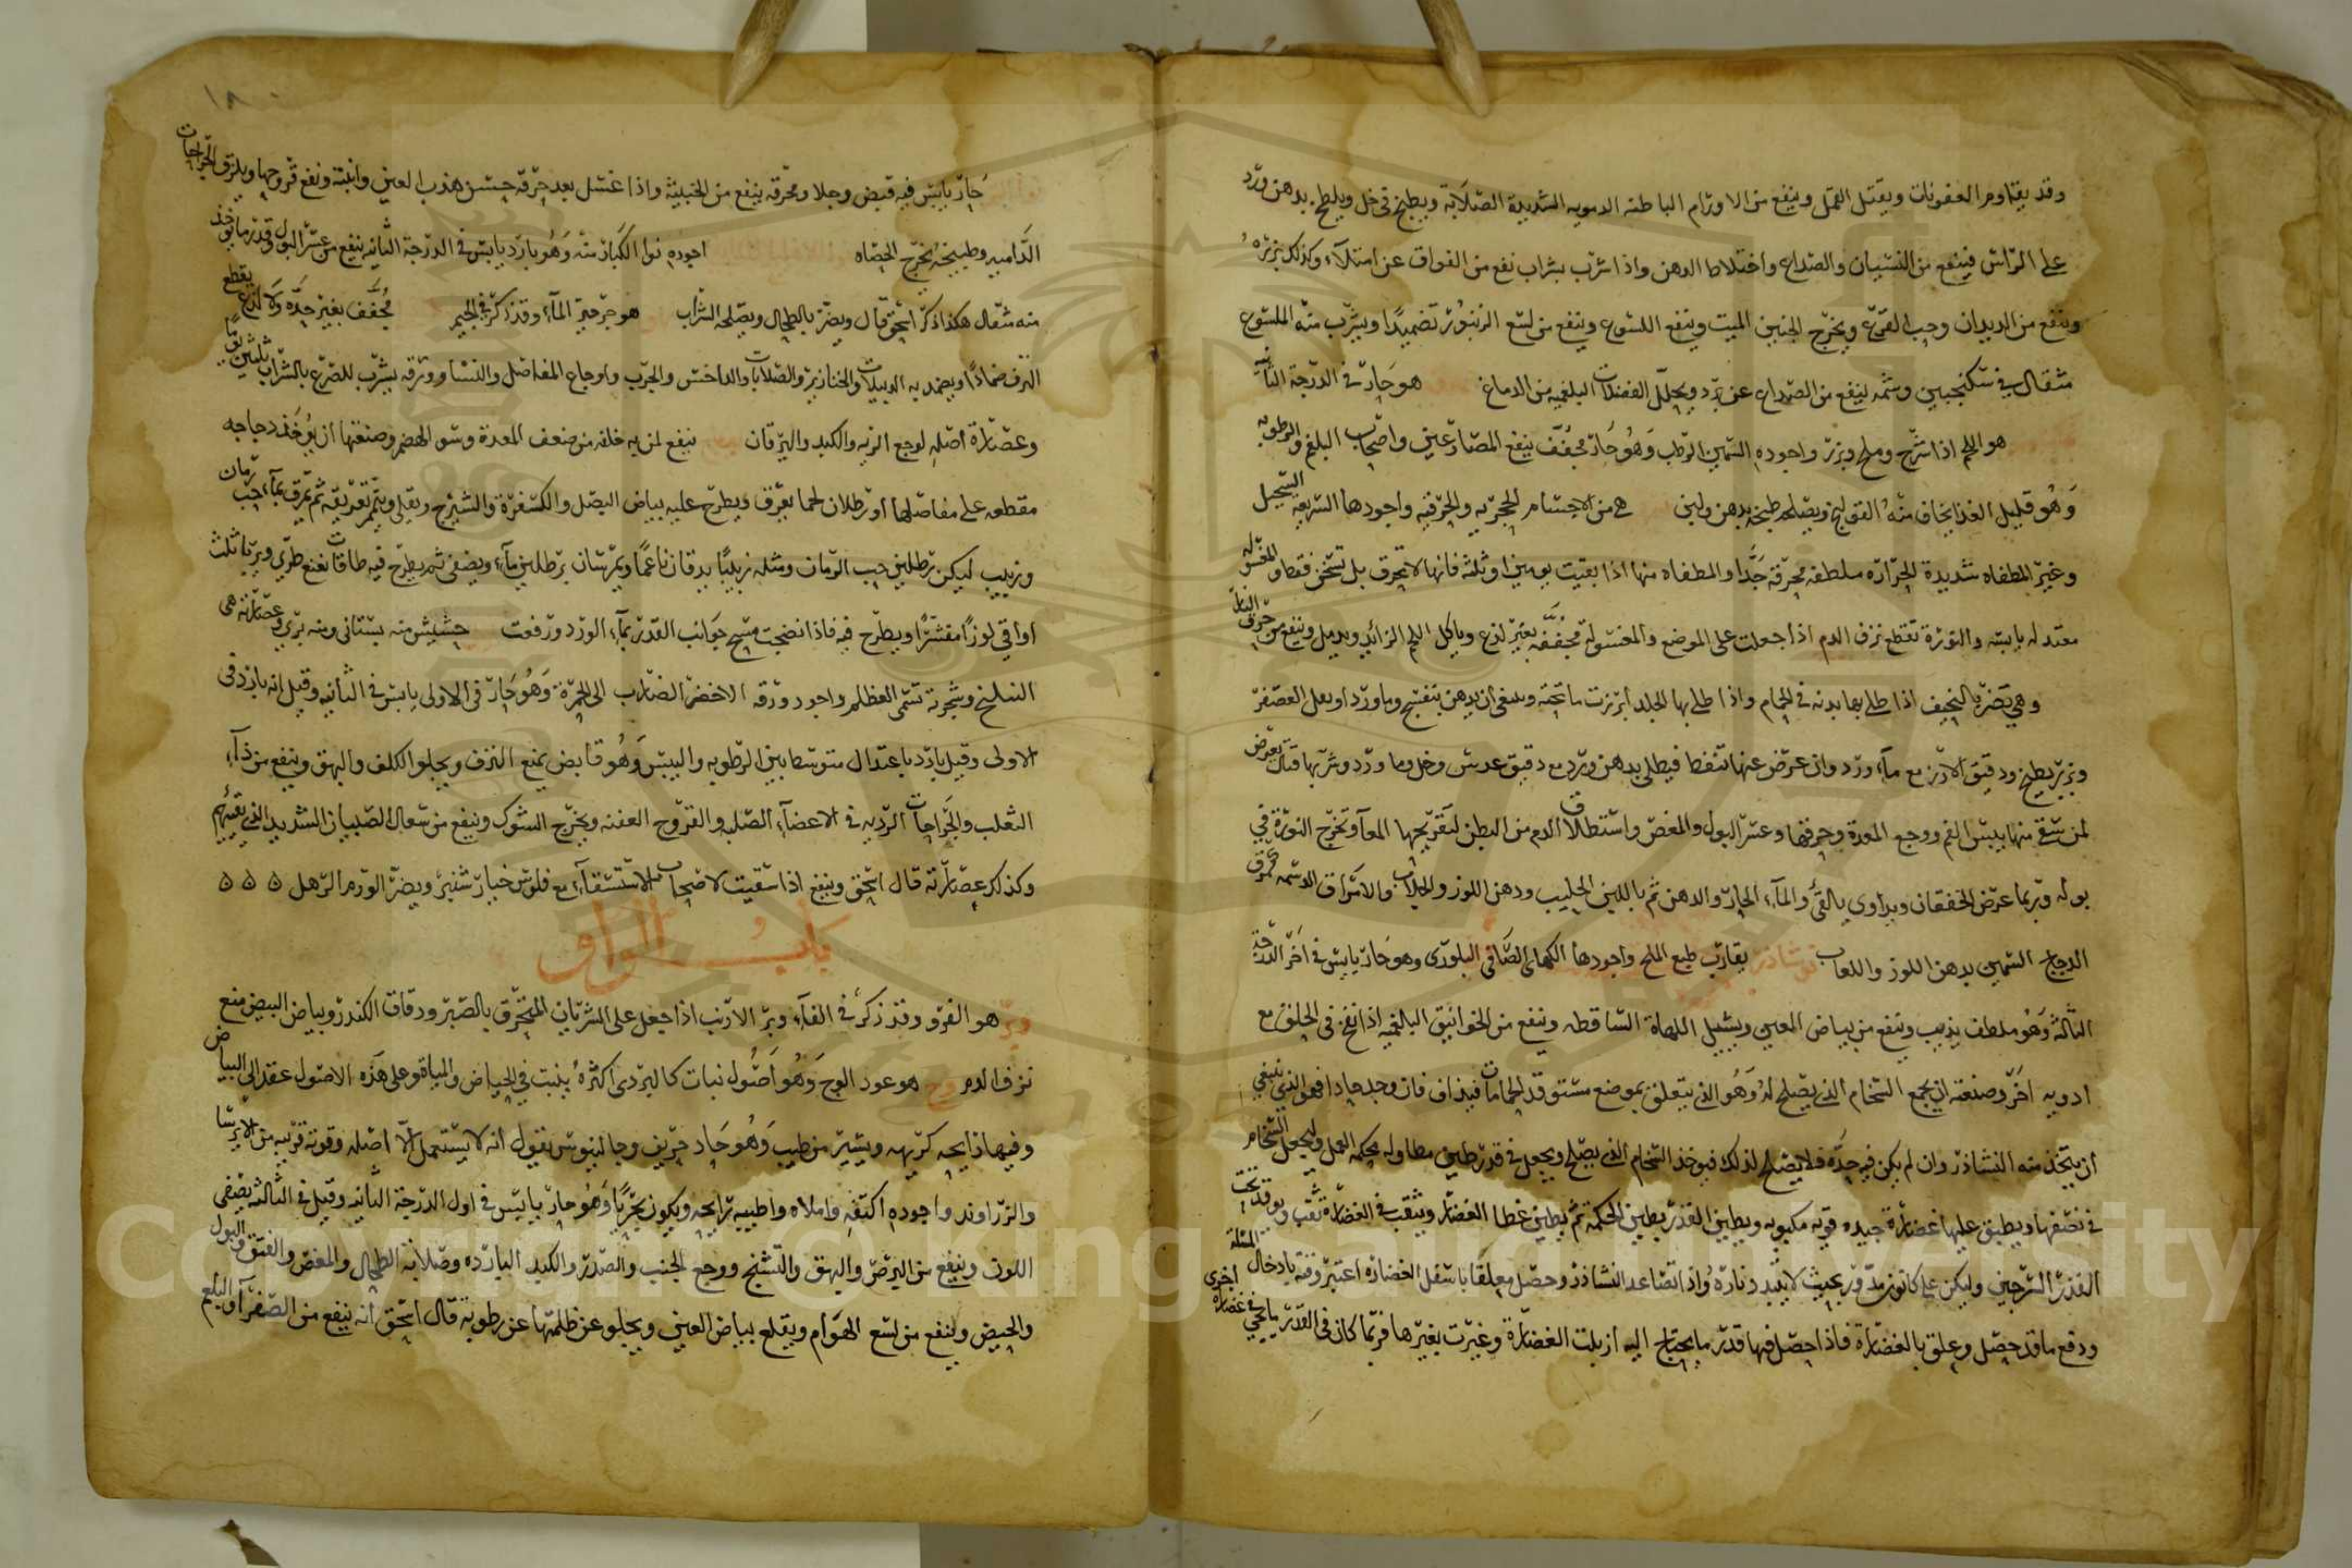 وقد يقاوم العفونات ويقتل القمل وينفع من الاورام الباطنه الدمويه الشديدة الصلابة ويطبخ في خل ويلطخ بدهن ورد
على الراس فينفع من النسيان والصداع واختلاط الدهن واذا شرب بشراب نفع من الفواق عن امتلآء وكذلك بزره
وينفع من الديدان وحب القرع ويخرج الجنين الميت وينفع اللسوع وينفع من لسع الزنبور تضميدا ويشرب منه الملسوع
مثقال في سكنجبين وشمه لينفع من الصداع عن برد ويحلل الفضلات البلغميه من الدماغ هو حار في الدرجة الثانيه
هو اللحم اذا شرح وملح وبزر واجوده السمين الرطب وهو حار مجفف ينفع المصارعين واصحاب البلغم والرطوبه
وهو قليل الغذا يخاف منه القولنج ويصلحه طبخه بدهن ولبن هي من الاجسام الحجريه والخزفيه واجودها السريعه التحيل
وغير المطفاه شديدة الحراره ملطفه محرقه جدا والمطفاه منها اذا بقيت يومين او ثلثه فانها لا تحرق بل تسخن فقط والمغسوله
معتدله يابسه والنورة تقطع نزف الدم اذا جعلت على الموضع والمغسولة مجففه بغير لذع وياكل اللحم الزائد ويدمل وينفع من حرق النار
وهي تضر بالنحيف اذا طلي بها بدنه في الحمام واذا طلي بها الجلد ابرزت ما تحته وينبغي ان يدهن بنفسج وماورد او بعل العصفر
وبزر بطيخ ودقيق الارز مع مآء ورد وان عرض عنها تنفط فيطلى بدهن ورد مع دقيق عدس وخل وما ورد وشربها قتال يعرض
لمن سقي منها يبس الفم ووجع المعدة وحرقتها وعسر البول والمغص واستطلاق الدم من البطن لتقريحها المعآ وتخرج النورة في
بوله وربما عرض الخفقان ويداوى بالقئ والمآء الحار والدهن ثم باللبن الحليب ودهن اللوز والجلاب والامراق الدسمه كمرق
الدجاج السمين بدهن اللوز واللعاب نوشاذر يقارب طبع الملح واجودها الكهانى الصافى البلورى وهو حار يابس في اخر الدرجة
الثالثة وهو ملطف يذيب وينفع من بياض العين ويشيل اللهاة الساقطه وينفع من الخوانيق البلغميه اذا نفخ في الحلق مع
ادويه اخر وصنعته ان يجمع السخام الذي يصلح له وهو الذي يتعلق بموضع مستوقد الحمامات فيذاق فان وجد حادا فهو الذي ينبغي
ان يتخذ منه النشاذر وان لم يكن فيه حده فلا يصلح لذلك فيوخذ السخام الذي يصلح ويجعل في قدر طين مطاوله محكمه العمل وليجعل السخام
في نصفها ويطبق عليها غضارة جيده قويه مكبوبه ويطين القدر بطين الحكمة ثم يطين غطا الغضار ويثقب في الغضارة ثقب ويوقد تحت
القدر السرجين وليكن على كانون مدور بحيث لا يتبدد ناره واذا تصاعد النشاذر وحصل معلقا باسفل الغضاره اعتبر وقته بادخال المسلة
ودفع ما قد حصل وعلق بالغضارة فاذا حصل فيها قدر ما يحتاج اليه ازيلت الغضارة وغيرت بغيرها فربما كان في القدر ما يجي في غضارة اخرى
حار يابس فيه قبض وجلا ومحرقه ينفع من الخبيثة واذا غسل بعد حرقه حسن هذب العين وانبته ونفع قروحها ويلزق الجراحات
الداميه وطبيخه يخرج الحصاه اجوده نوا الكبار منه وهو بارد يابس في الدرجة الثانيه ينفع من عسر البول وقدر ما يوخذ
منه مثقال هكذا ذكر اسحق قال ويضر بالطحال ويصلحه الشراب هو حرجير المآء وقد ذكر في الجيم مجفف بغير حده ولا لذع يقطع
النزف ضمادا ويضمد به الدبيلات والخنازير والصلابات والداخس والجرب واوجاع المفاصل والنسا وورقه يشرب للصرع بالشراب ثلثين يوما
وعصارة اصله لوجع الريه والكبد واليرقان ينفع لمن به خلفه من ضعف المعدة وسو الهضم وصنعتها ان يوخذ دجاجه
مقطعه على مفاصلها او رطلان لحما يعرق ويطرح عليه بياض البصل والكسفرة والشيرج ويقلى ويتمم تعريقه ثم يمرق بمآء حب رمان
وزبيب ليكن رطلين حب الرمان ومثله زبيبا يدقان ناعما ويمرسان برطلين مآء ويصفى ثم يطرح فيه طاقات نعنع طري ويربا ثلث
اواقي لوزا مقشرا ويطرح فيه فاذا نضجت مسح جوانب القدر بمآء الورد ورفعت حشيش منه بستانى ومنه بري وعصارته هى
النيلج وشجرته تسمى العظلم واجود ورقه الاخضر الضارب الى الحمرة وهو حار في الاولى يابس في الثانيه وقيل انه بارد في
الاولى وقيل بارد باعتدال متوسط بين الرطوبه واليبس وهو قابض يمنع النزف ويجلو الكلف والبهق وينفع من دآء
الثعلب والجراحات الرديه في الاعضآء الصلبه والقروح العفنه ويخرج الشوك وينفع من سعال الصبيان الشديد الذي يقيئهم
وكذلك عصارته قال اسحق وينفع اذا سقيت لاصحاب الاستسقآء مع فلوس خيار شنبر ويضر الورم الرهل ه ه ه
باب الواو
وبر هو الفرو وقد ذكر في الفآء وبر الارنب اذا جعل على الشريان المنخرق بالصبر ودقاق الكندر وبياض البيض منع
نزف الدم وج هو عود الوج وهو اصول نبات كالبردى اكثره ينبت في الحياض والمياه وعلى هذه الاصول عقد الى البياض
وفيها رايحه كريهه ويسير من طيب وهو حار حريف وجالينوس يقول انه لا يستعمل الا اصله وقوته قريبه من الايرسا
والزراوند واجوده اكثفه واملاه واطيبه رايحه ويكون بحريا وهو حار يابس في اول الدرجة الثانيه وقيل في الثالثه يصفى
اللون وينفع من البرص والبهق والتشنج ووجع الجنب والصدر والكبد البارده وصلابة الطحال والمغص والفتق والبول
والحيض وينفع من لسع الهوام ويقلع بياض العين ويجلو عن ظلمتها عن رطوبة قال اسحق انه ينفع من الصفرآ والبلغم
Copyright © King Saud University